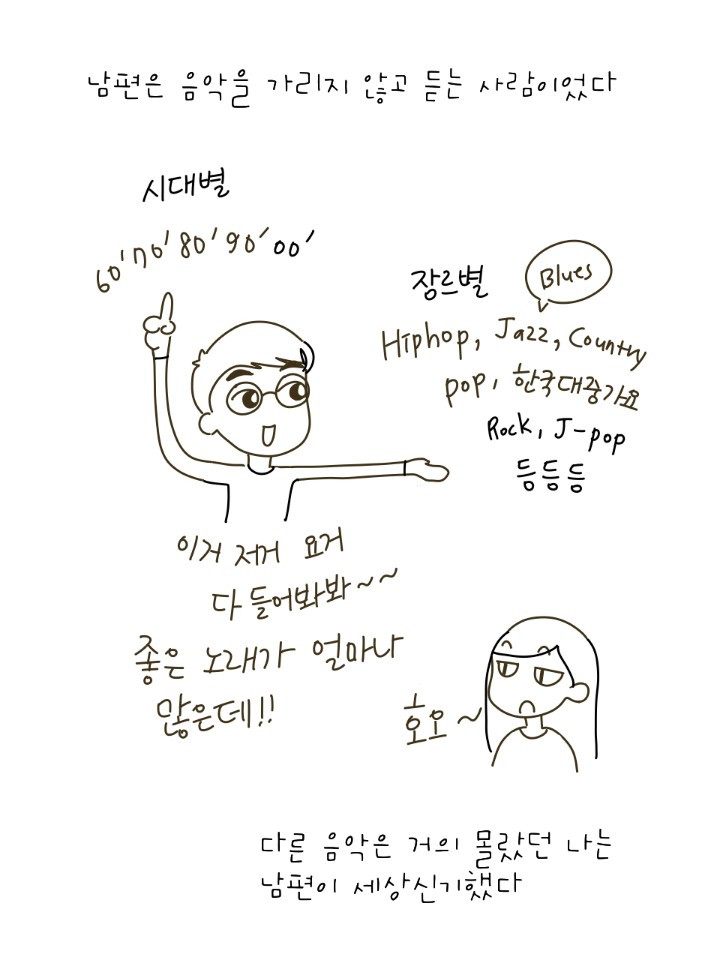 남편은 음악을 가리지 않고 듣는 사람이었다
시대별
60' 70' 80' 90' 00'
장르별
Blues
Hiphop, Jazz, Country
pop, 한국대중가요
Rock, J-pop
등등등
이거 저거 요거
다 들어봐봐~~
좋은 노래가 얼마나
많은데!!
호오~
다른 음악은 거의 몰랐던 나는
남편이 세상신기했다